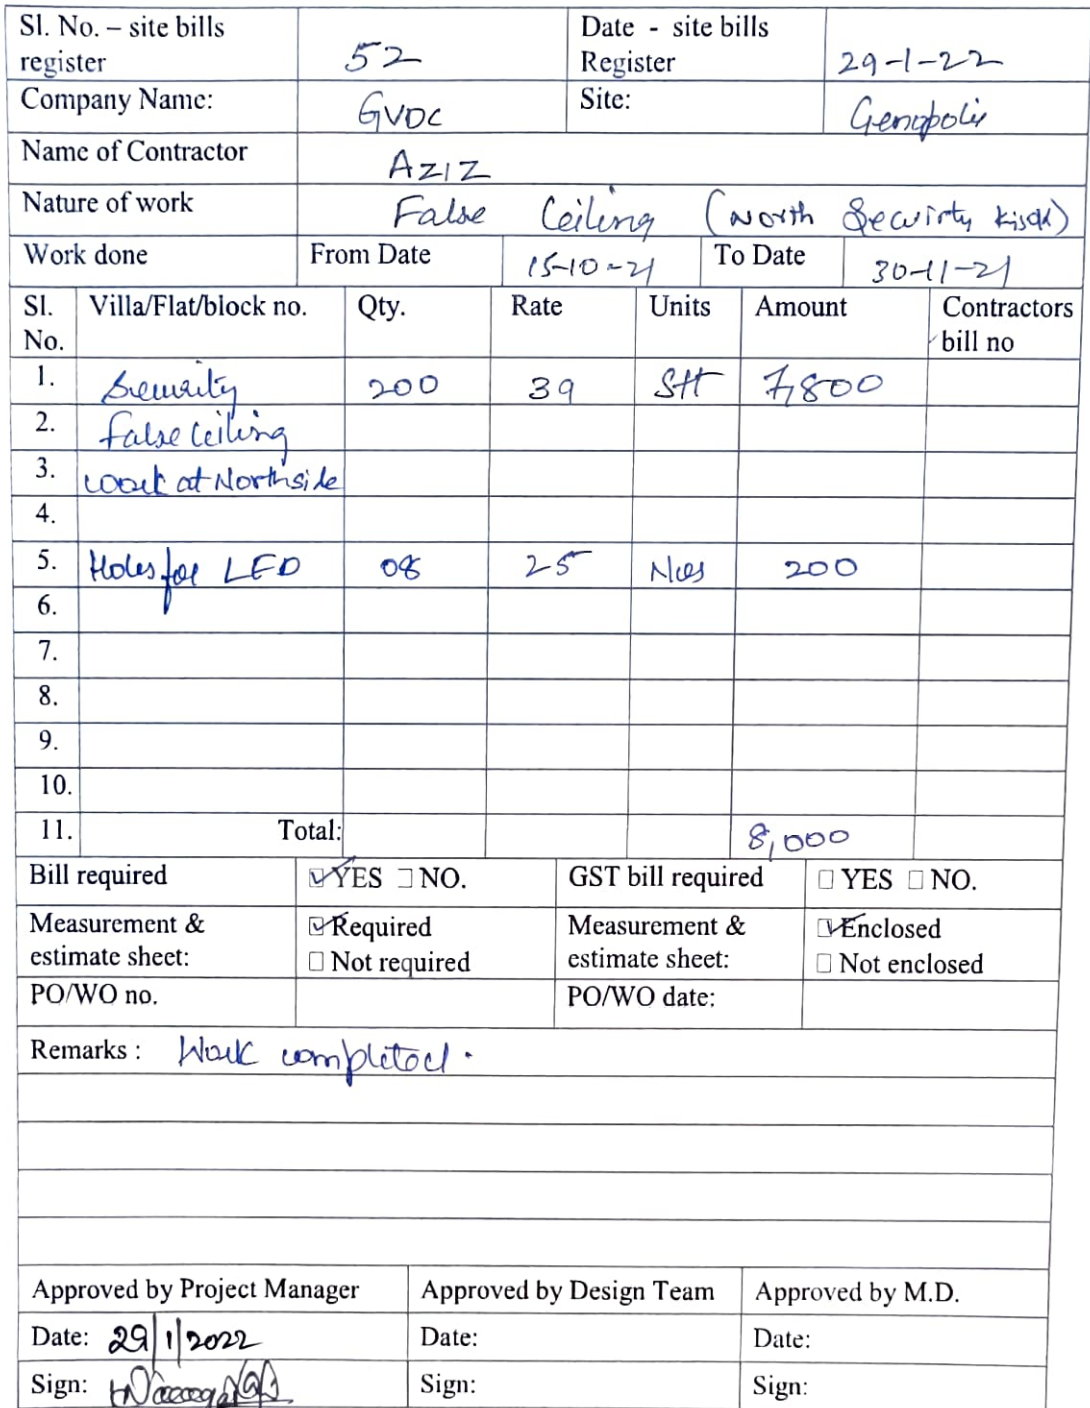 Sl. No. – site bills register 52 Date - site bills Register 29-1-22
Company Name: GVDC Site: Genopolis
Name of Contractor AZIZ
Nature of work False Ceiling (North Security kiosk)
Work done From Date 15-10-21 To Date 30-11-21
Sl. No. Villa/Flat/block no. Qty. Rate Units Amount Contractors bill no
1. Security 200 39 Sft 7,800
2. False Ceiling
3. work at Northside
4.
5. Holes for LED 08 25 Nos 200
6.
7.
8.
9.
10.
11. Total: 8,000
Bill required ☑ YES ☐ NO. GST bill required ☐ YES ☐ NO.
Measurement & estimate sheet: ☑ Required ☐ Not required Measurement & estimate sheet: ☑ Enclosed ☐ Not enclosed
PO/WO no. PO/WO date:
Remarks : Work completed.
Approved by Project Manager Approved by Design Team Approved by M.D.
Date: 29/1/2022 Date: Date:
Sign: Sign: Sign: